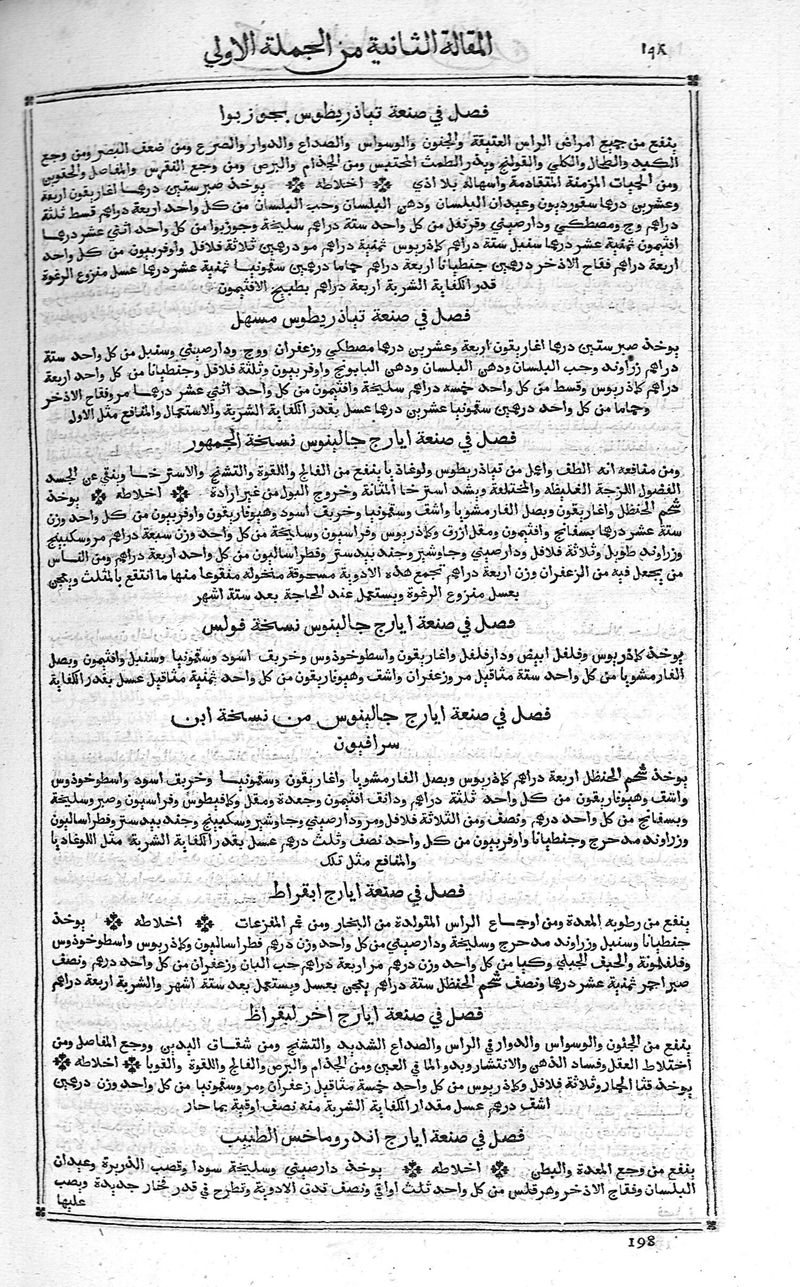 ١٩٨
المقالة الثانية من الجملة الاولي
فصل في صنعة تياذريطوس بجوزبوا
ينفع من جميع امراض الراس العتيقة والجنون والوسواس والصداع والدوار والصرع ومن ضعف البصر ومن وجع
الكبد والطحال والكلي والقولنج ويدر الطمث المحتبس ومن الجذام والبرص ومن وجع النقرس والمفاصل والحقوين
ومن الحميات المزمنة المتقادمة واسهاله بلا اذي ❊ اخلاطه ❊ يوخذ صبر ستين درهما اغاريقون اربعة
وعشرين درهما سقورديون وعيدان البلسان ودهن البلسان وحب البلسان من كل واحد اربعة دراهم قسط ثلثة
دراهم وج ومصطكي ودارصيني وقرنفل من كل واحد ستة دراهم سليخة وجوزبوا من كل واحد اثني عشر درهما
افتيمون ثمنية عشر درهما سنبل ستة دراهم كاذريوس ثمنية دراهم مو درهمين ثلاثة فلافل واوفربيون من كل واحد
اربعة دراهم فقاح الاذخر درهمين جنطيانا اربعة دراهم حماما درهمين سقمونيا ثمنية عشر درهما عسل منزوع الرغوة
قدر الكفاية الشربة اربعة دراهم بطبيخ الافتيمون
فصل في صنعة تياذريطوس مسهل
يوخذ صبر ستين درهما اغاريقون اربعة وعشرين درهما مصطكي وزعفران ووج ودارصيني وسنبل من كل واحد ستة
دراهم زراوند وحب البلسان ودهن البلسان ودهن البابونج واوفربيون وثلثة فلافل وجنطيانا من كل واحد اربعة
دراهم كاذريوس وقسط من كل واحد خمسة دراهم سليخة وافتيمون من كل واحد اثني عشر درهما مر وفقاح الاذخر
وحماما من كل واحد درهمين سقمونيا عشرين درهما عسل بقدر الكفاية الشربة والاستعمال والمنافع مثل الاول
فصل في صنعة ايارج جالينوس نسخة الجمهور
ومن منافعه انه الطف واعجل من تياذريطوس ولوغاذيا ينفع من الفالج واللقوة والتشنج والاسترخا وينقي عن الجسد
الفضول اللزجة الغليظة والمختلفة ويشد استرخا المثانة وخروج البول من غير ارادة ❊ اخلاطه ❊ يوخذ
شحم الحنظل واغاريقون وبصل الفار مشويا واشق وسقمونيا وخربق اسود وهيوفاريقون واوفربيون من كل واحد وزن
ستة عشر درهما بسفانج وافتيمون ومقل ازرق وكاذريوس وفراسيون وسليخة من كل واحد وزن سبعة دراهم مر وسكبينج
وزراوند طويل وثلاثة فلافل ودارصيني وجاوشير وجندبيدستر وفطراساليون من كل واحد اربعة دراهم ومن الناس
من يجعل فيه من الزعفران وزن اربعة دراهم تجمع هذه الادوية مسحوقة منخولة منقوعا منها ما انتقع بالمثلث ويعجن
بعسل منزوع الرغوة ويستعمل عند الحاجة بعد ستة اشهر
فصل في صنعة ايارج جالينوس نسخة فولس
يوخذ كاذريوس وفلفل ابيض ودارفلفل واغاريقون واسطوخوذوس وخربق اسود وسقمونيا وسنبل وافتيمون وبصل
الفار مشويا من كل واحد ستة مثاقيل مر وزعفران واشق وهيوفاريقون من كل واحد ثمنية مثاقيل عسل بقدر الكفاية
فصل في صنعة ايارج جالينوس من نسخة ابن
سرافيون
يوخذ شحم الحنظل اربعة دراهم كاذريوس وبصل الفار مشويا واغاريقون وسقمونيا وخربق اسود واسطوخوذوس
واشق وهيوفاريقون من كل واحد ثلثة دراهم ودانق افتيمون وجعدة ومقل وكافيطوس وفراسيون وصبر وسليخة
وبسفانج من كل واحد درهم ونصف ومن الثلاثة فلافل ومر ودارصيني وجاوشير وسكبينج وجندبيدستر وفطراساليون
وزراوند مدحرج وجنطيانا واوفربيون من كل واحد نصف وثلث درهم عسل بقدر الكفاية الشربة مثل اللوغاديا
والمنافع مثل تلك
فصل في صنعة ايارج ابقراط
ينفع من رطوبه المعدة ومن اوجاع الراس المتولدة من البخار ومن غم المفزعات ❊ اخلاطه ❊ يوخذ
جنطيانا وسنبل وزراوند مدحرج وسليخة ودارصيني من كل واحد وزن درهم فطراساليون وكاذريوس واسطوخوذوس
وفلفلمونة والحبق الجبلي وكيا من كل واحد وزن درهم مر اربعة دراهم حب البان وزعفران من كل واحد درهم ونصف
صبر احمر ثمنية عشر درهما ونصف شحم الحنظل ستة دراهم يعجن بعسل ويستعمل بعد ستة اشهر والشربة اربعة دراهم
فصل في صنعة ايارج اخر لبقراط
ينفع من الجنون والوسواس والدوار في الراس والصداع الشديد والتشنج ومن شقاق اليدين ووجع المفاصل ومن
اختلاط العقل وفساد الذهن والانتشار وبدو الما في العين ومن الجذام والبرص والفالج واللقوة والقوبا ❊ اخلاطه ❊
يوخذ قثا الحمار وثلاثة فلافل وكاذريوس من كل واحد خمسة مثاقيل زعفران ومر وسقمونيا من كل واحد وزن درهمين
اشق درهم عسل مقدار الكفاية الشربة منه نصف اوقية بما حار
فصل في صنعة ايارج اندروماخس الطبيب
ينفع من وجع المعدة والبطن ❊ اخلاطه ❊ يوخذ دارصيني وسليخة سودا وقصب الذريرة وعيدان
البلسان وفقاح الاذخر وهرقلس من كل واحد ثلث اواقي ونصف تدق الادوية وتطرح في قدر فخار جديدة ويصب
عليها
198